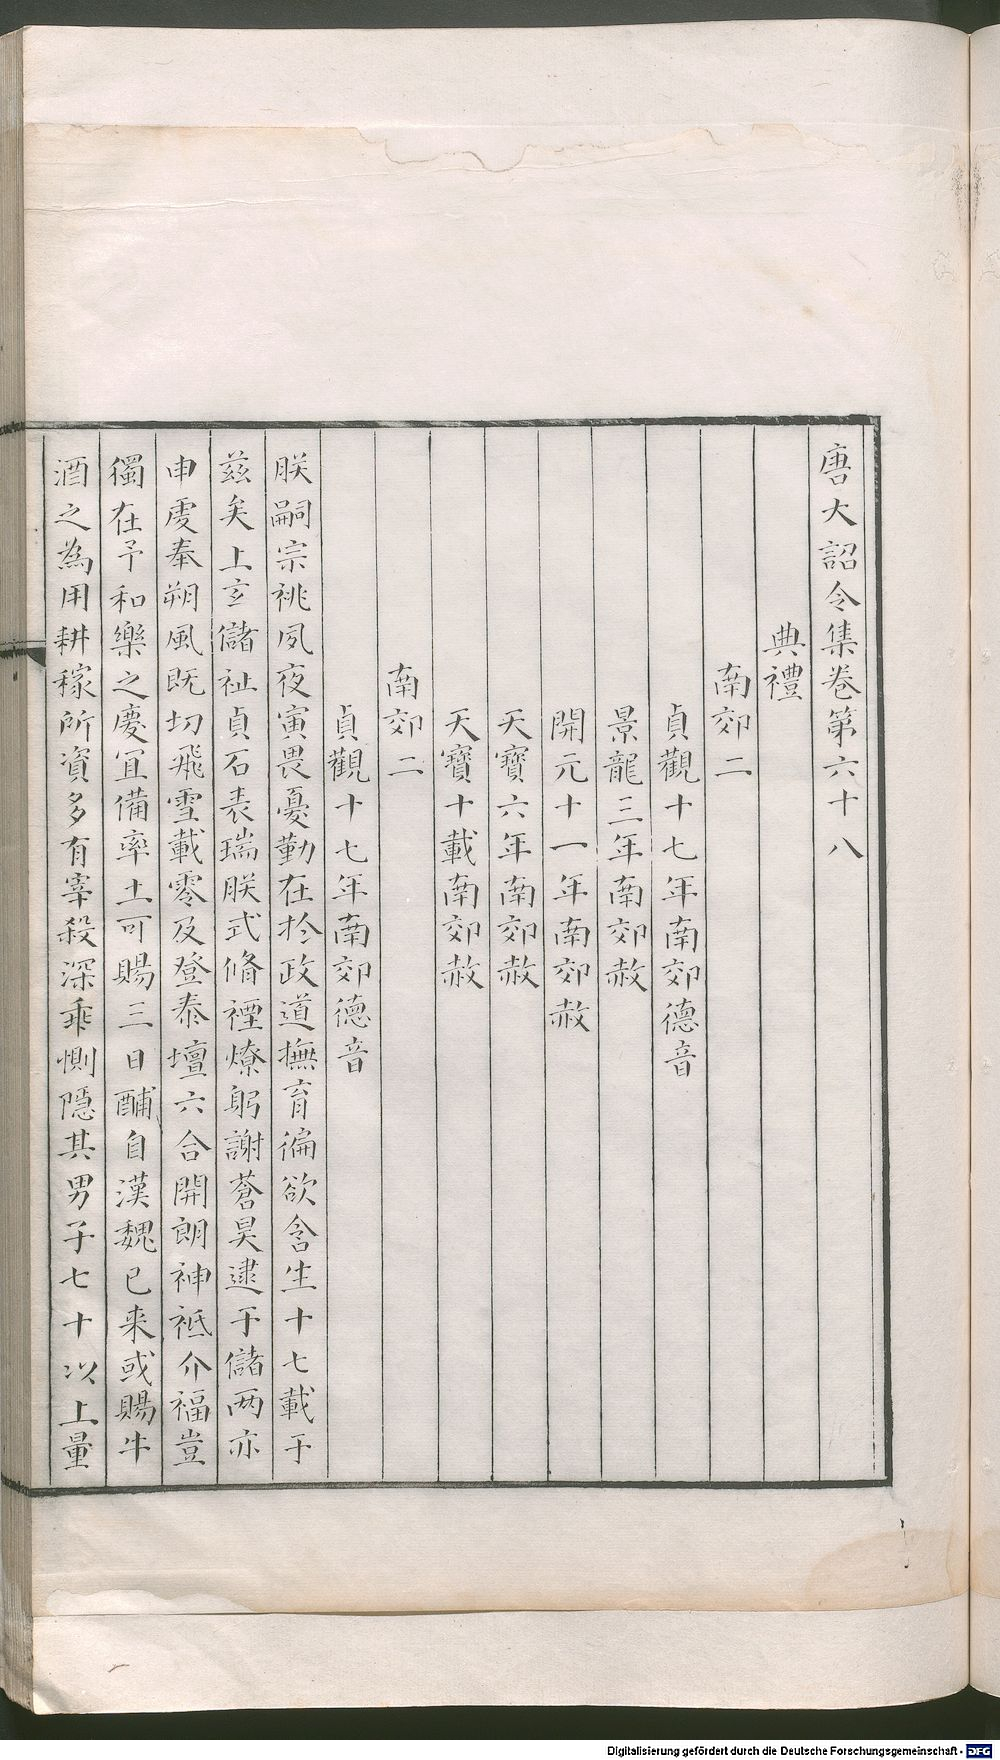 唐大詔令集卷第六十八
典禮
南郊二
貞觀十七年南郊德音
景龍三年南郊赦
開元十一年南郊赦
天寶六年南郊赦
天寶十載南郊赦
南郊二
貞觀十七年南郊德音
朕嗣宗祧夙夜寅畏憂勤在於政道撫育徧欲含生十七載于
茲矣上玄儲祉貞石表瑞朕式脩禋燎躬謝蒼昊逮于儲兩亦
申虔奉朔風既切飛雪載零及登泰壇六合開朗神祗介福豈
獨在予和樂之慶宜備率土可賜三日酺自漢魏已来或賜牛
酒之為用耕稼所資多有宰殺深乖惻隱其男子七十以上量
Digitalisierung gefördert durch die Deutsche Forschungsgemeinschaft - DFG